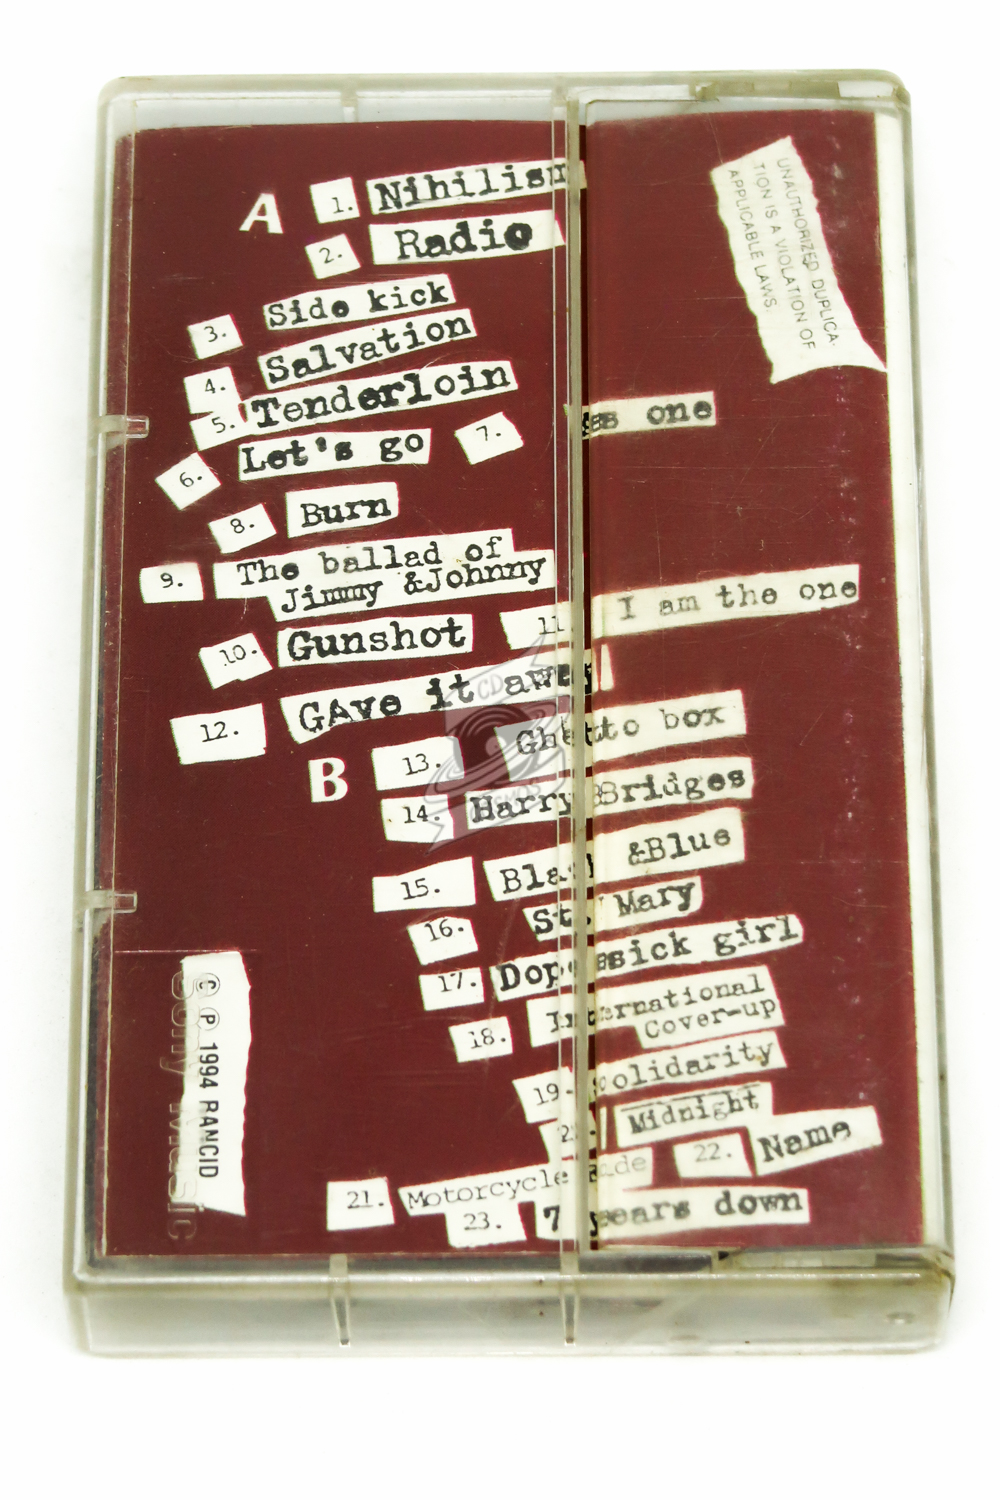 A
1. Nihilism
2. Radio
3. Side kick
4. Salvation
5. Tenderloin
6. Let's go
7. as one
8. Burn
9. The ballad of
Jimmy &Johnny
10. Gunshot
11. I am the one
12. GAve it away
B
13. Ghetto box
14. Harry Bridges
15. &Blue
16. Mary
17. Dopesick girl
18. International
Cover-up
19. Solidarity
Midnight
21. Motorcycle Ride
22. Name
23. 7 years down
UNAUTHORIZED DUPLICA-
TION IS A VIOLATION OF
APPLICABLE LAWS.
C P 1994 RANCID
Sony Music
CD
COSMOS